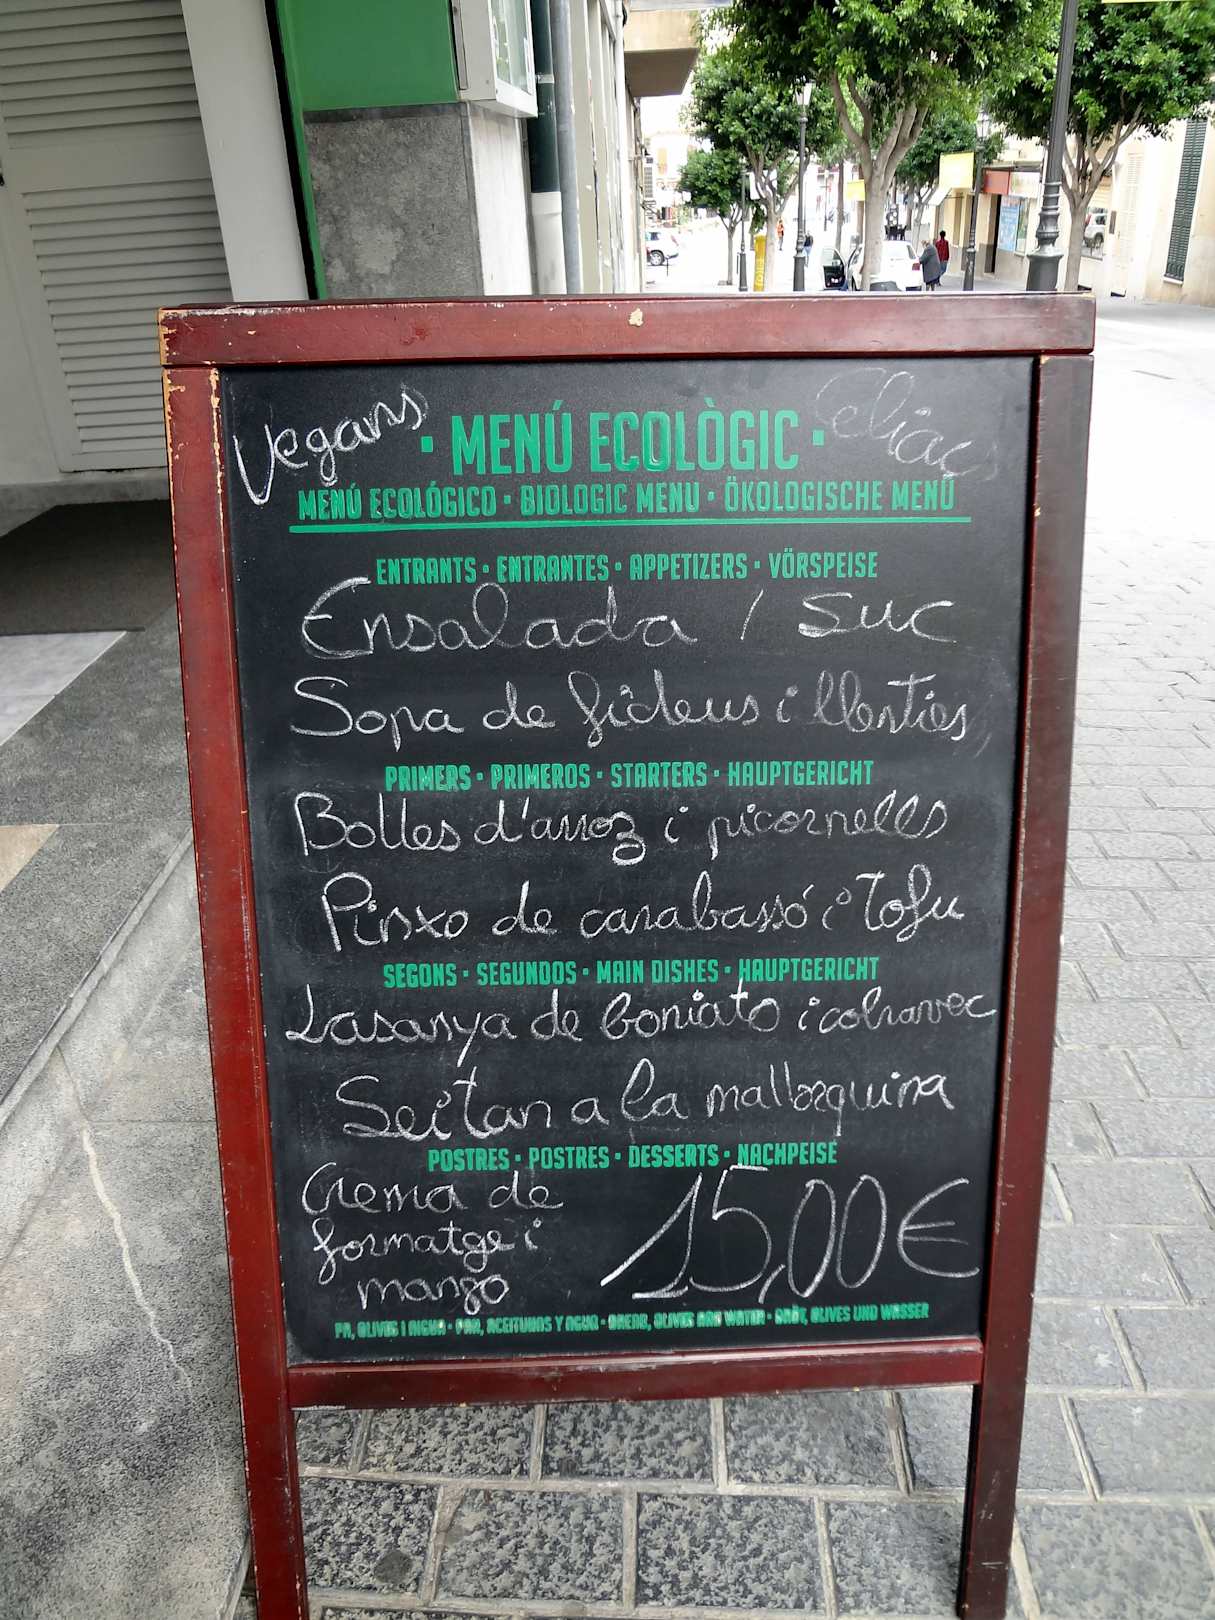 Vegans · MENÚ ECOLÒGIC · Celiacs
MENÚ ECOLÓGICO · BIOLOGIC MENU · ÖKOLOGISCHE MENÜ
ENTRANTS · ENTRANTES · APPETIZERS · VÖRSPEISE
Ensalada / Suc
Sopa de fideus i llenties
PRIMERS · PRIMEROS · STARTERS · HAUPTGERICHT
Bolles d'arroz i picornells
Pinxo de carabassó i Tofu
SEGONS · SEGUNDOS · MAIN DISHES · HAUPTGERICHT
Lasanya de boniato i colnavec
Seitan a la mallorquina
POSTRES · POSTRES · DESSERTS · NACHPEISE
Crema de
formatge i
mango
15,00€
PA, OLIVES I AIGUA · PAN, ACEITUNAS Y AGUA · BREAD, OLIVES AND WATER · BRÖT, OLIVES UND WASSER